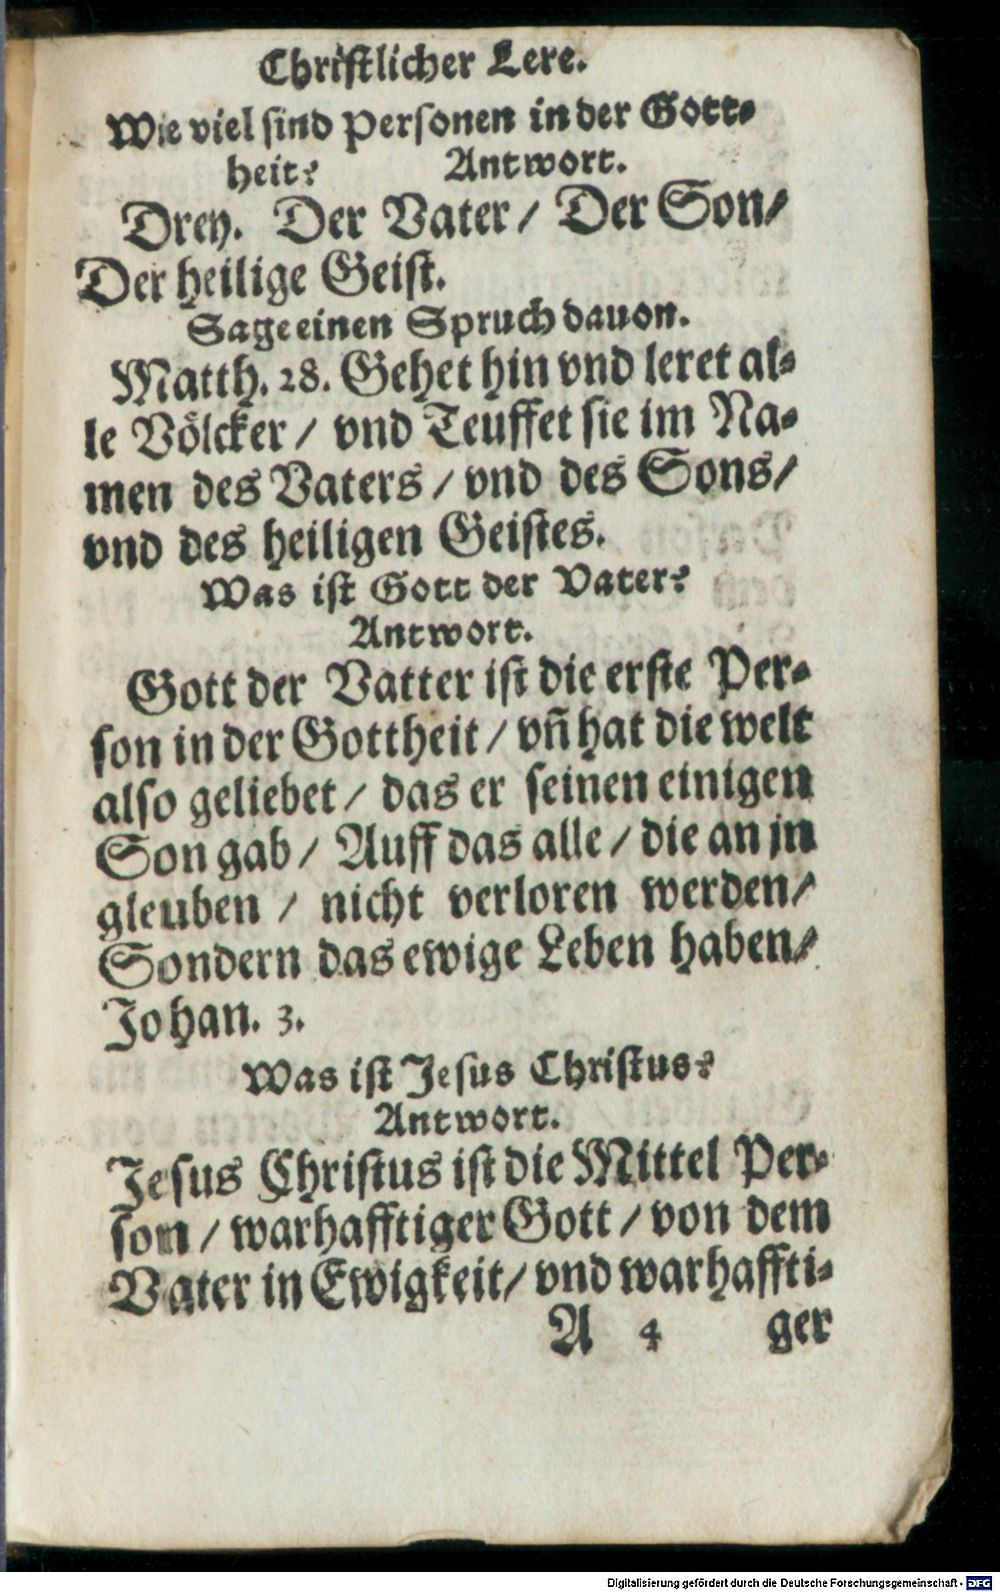 Christlicher Lere.
Wie viel sind Personen in der Gott-
heit? Antwort.
Drey. Der Vater / Der Son /
Der heilige Geist.
Sage einen Spruch dauon.
Matth. 28. Gehet hin vnd leret al-
le Völcker / vnd Teuffet sie im Na-
men des Vaters / vnd des Sons /
vnd des heiligen Geistes.
Was ist Gott der Vater?
Antwort.
Gott der Vatter ist die erste Per-
son in der Gottheit / vñ hat die welt
also geliebet / das er seinen einigen
Son gab / Auff das alle / die an jn
gleuben / nicht verloren werden /
Sondern das ewige Leben haben /
Johan. 3.
Was ist Jesus Christus?
Antwort.
Jesus Christus ist die Mittel Per-
son / warhafftiger Gott / von dem
Vater in Ewigkeit / vnd warhaffti-
A 4 ger
Digitalisierung gefördert durch die Deutsche Forschungsgemeinschaft - DFG